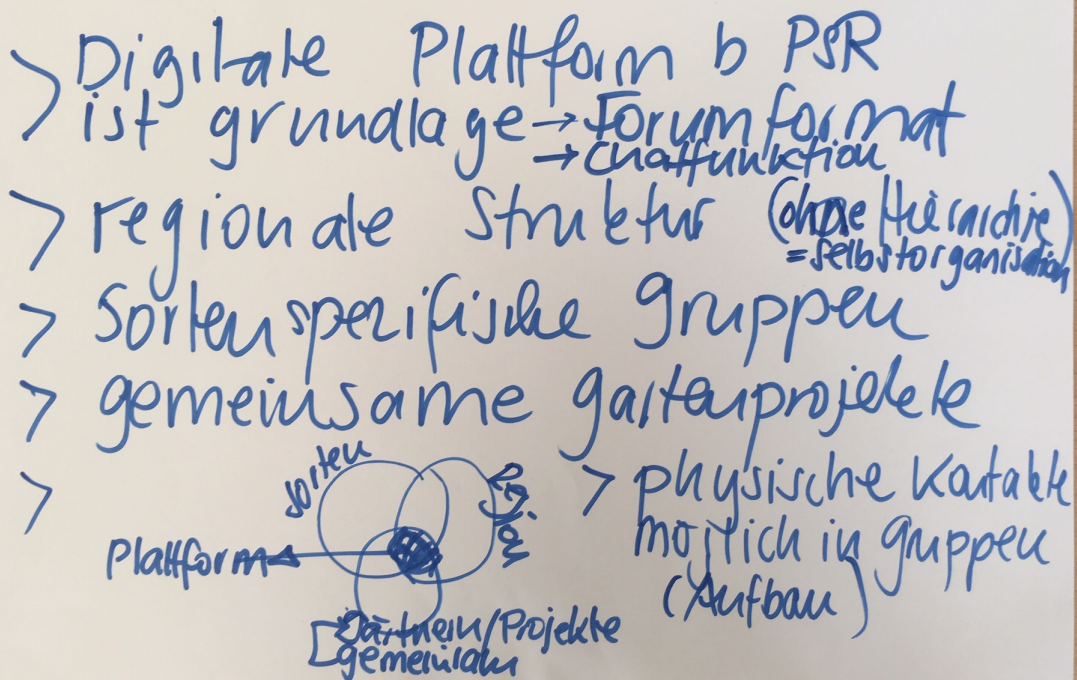 > Digitale Plattform b PSR
ist grundlage → Forumformat
→ Chatfunktion
> regionale Struktur (ohne Hierarchie)
= selbstorganisation
> Sortenspezifische gruppen
> gemeinsame gartenprojekte
>
Sorten
Region
Plattform
[Gärtnern/Projekte
gemeinsam
> physische Kontakte
möglich in gruppen
(Aufbau)